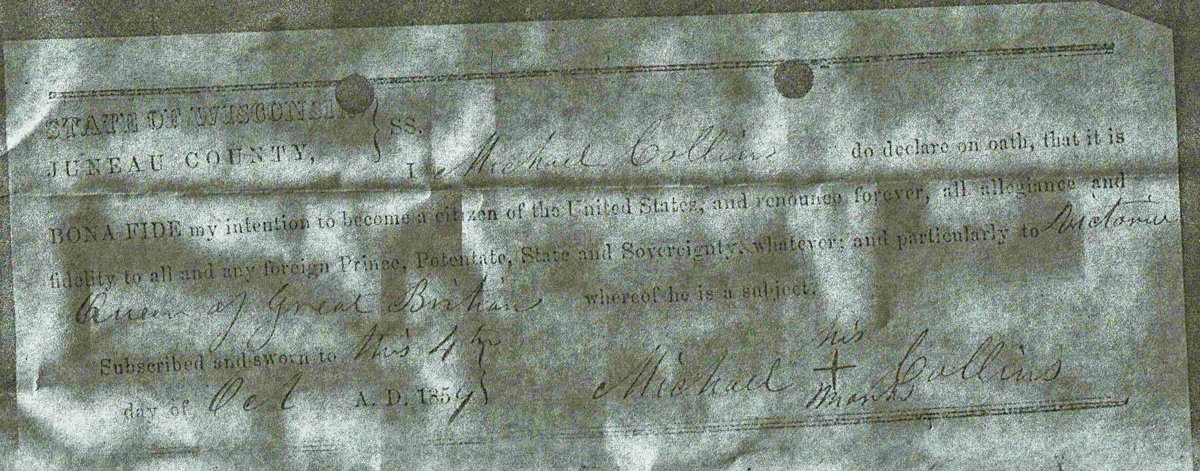 STATE OF WISCONSIN
SS.
JUNEAU COUNTY,
I Michael Collins do declare on oath, that it is
BONA FIDE my intention to become a citizen of the United States, and renounce forever, all allegiance and
fidelity to all and any foreign Prince, Potentate, State and Sovereignty, whatever; and particularly to Victoria
Queen of Great Britain whereof he is a subject.
Subscribed and sworn to this 4th
day of Oct A. D. 1859
his
Michael + Collins
mark